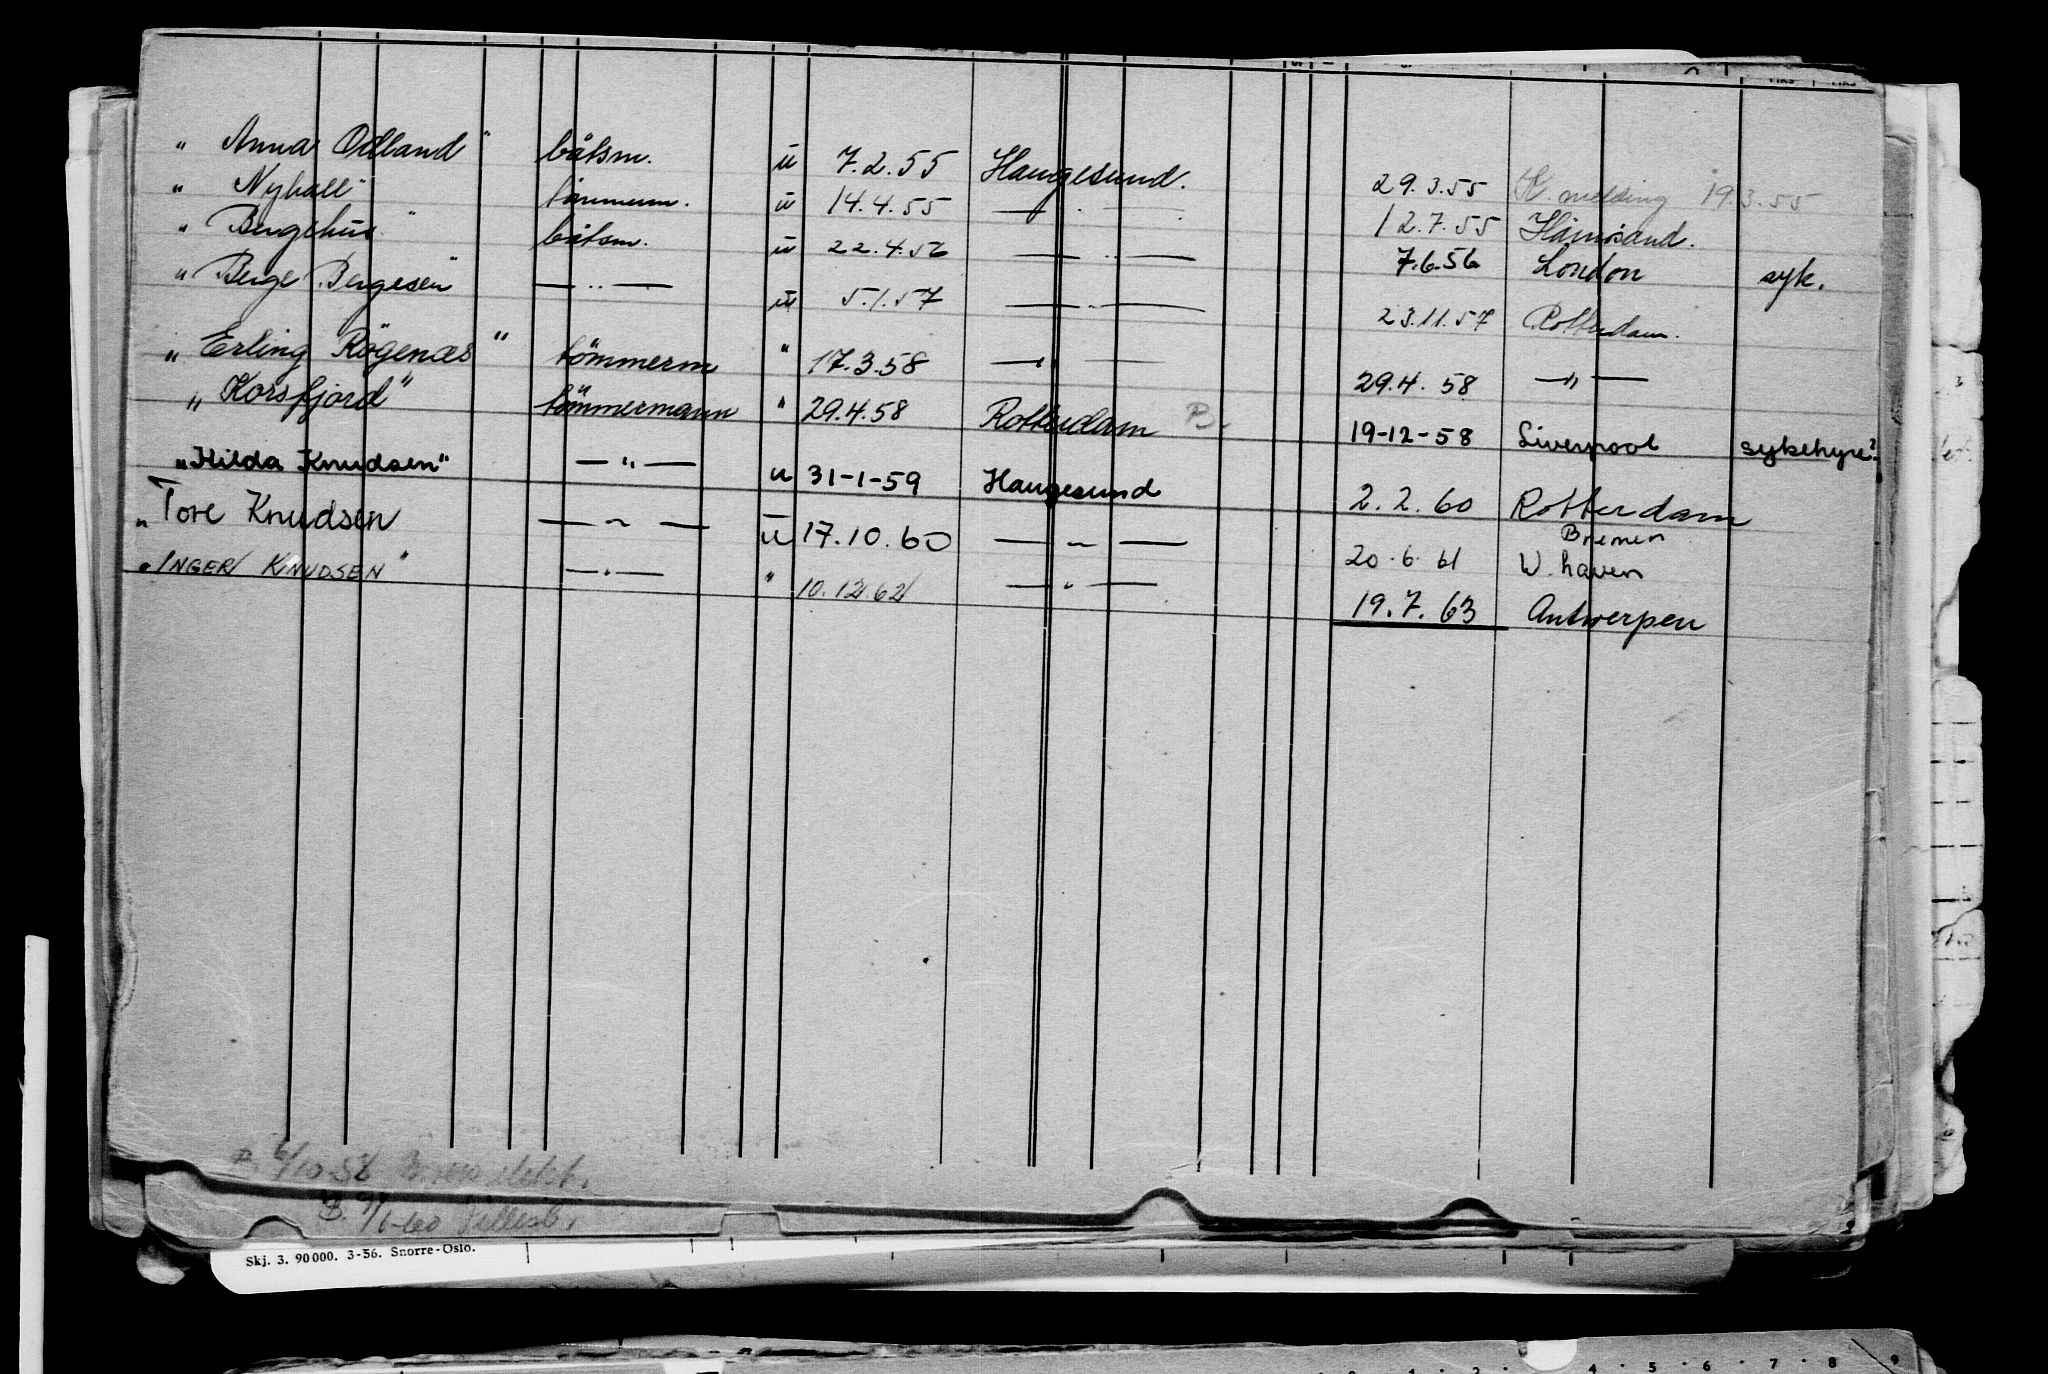 „ Anna Odland " båtsm. ü 7.2.55 Haugesund. 29.3.55 K. melding 19.3.55
" Nyhall" tömmerm. ü 14.4.55 — " — 12.7.55 Härnösand.
" Bergehus " båtsm. ü 22.4.56 — " — 7.6.56 London syk.
" Berge Bergesen" — " — ü 5.1.57 — " — 23.11.57 Rotterdam.
„ Erling Rögenæs " tömmerm " 17.3.58 — " — 29.4.58 — " —
„ Korsfjord" tömmermann " 29.4.58 Rotterdam B. 19-12-58 Liverpool sykehyre?
"Hilda Knudsen" — " — u 31-1-59 Haugesund 2.2.60 Rotterdam
„ Tore Knudsen — " — ü 17.10.60 — " — 20.6.61 Bremen
W. haven
"INGER KNUDSEN" — " — " 10.12.62 — " — 19.7.63 Antwerpen
B. 6/10-58
B. 9/1-60
Skj. 3. 90000. 3-56. Snorre-Oslo.
1 · 2 · 4 · 5 · 6 · 7 · 8 · 9